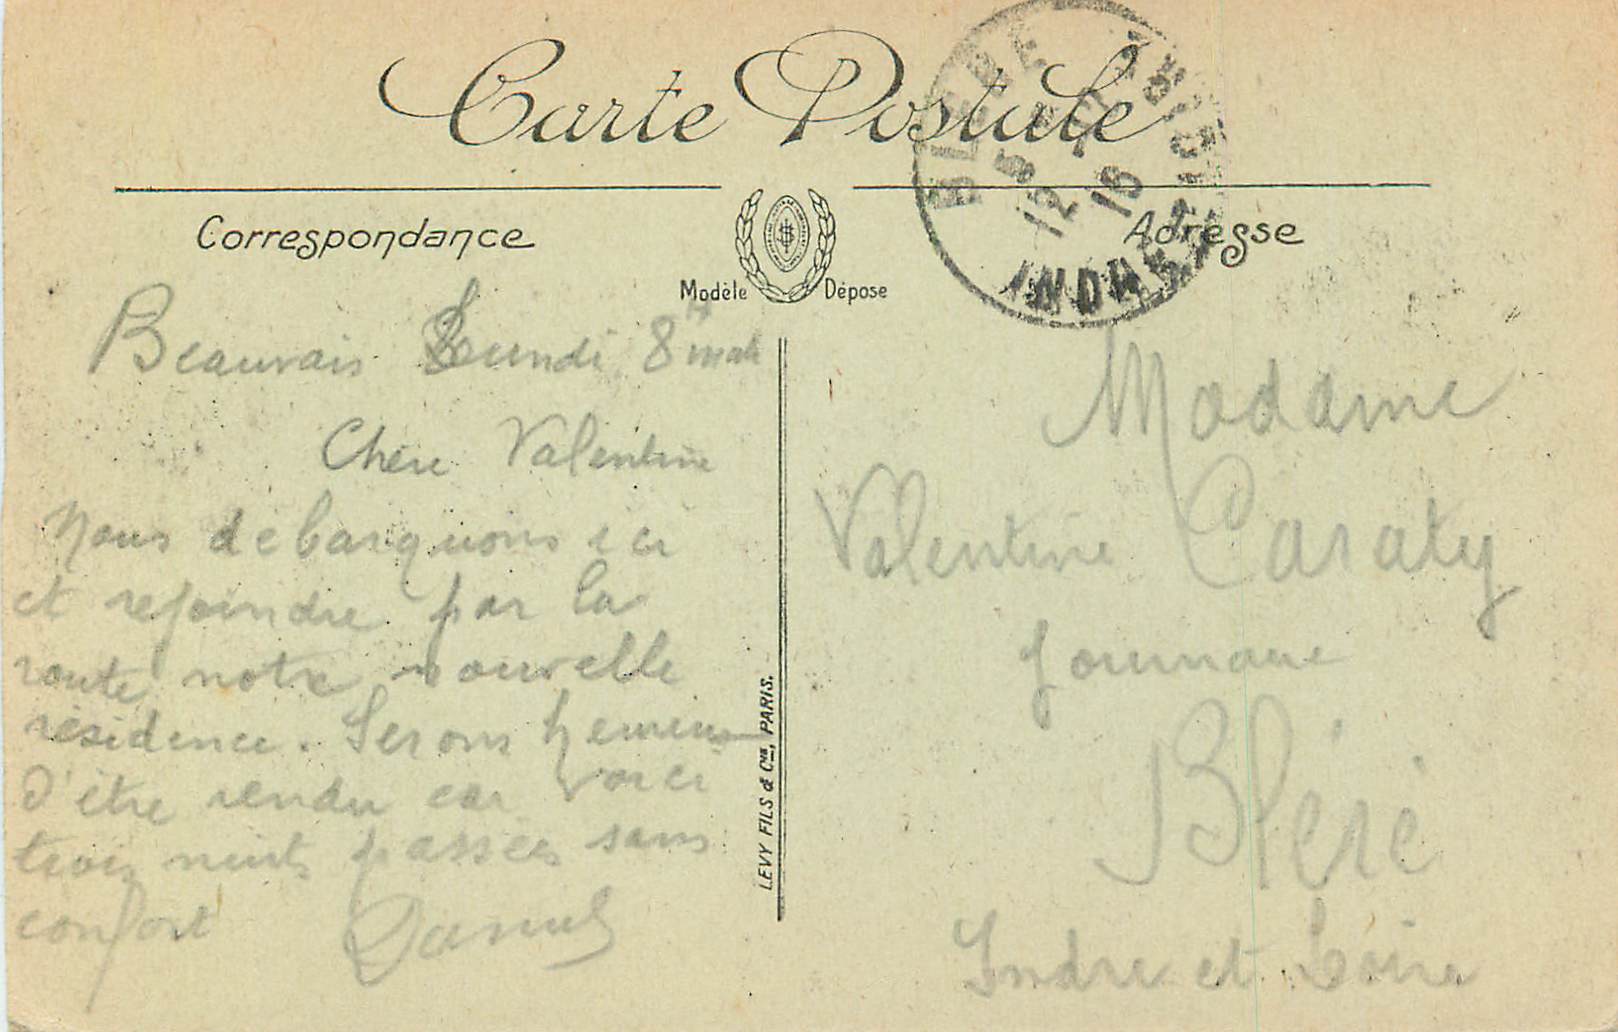 Carte Postale
Correspondance
Adresse
Modèle Dépose
BLERE
12
16
INDRE
Beauvais Lundi 8h
Chère Valentine
Nous debarquons ici
et rejoindre par la
route notre nouvelle
résidence. Serons heureux
d'être rendu car voici
trois nuits passées sans
confort Daniel
LEVY FILS & Cie, PARIS.
Madame
Valentine Caraty
Bléré
Indre et Loire